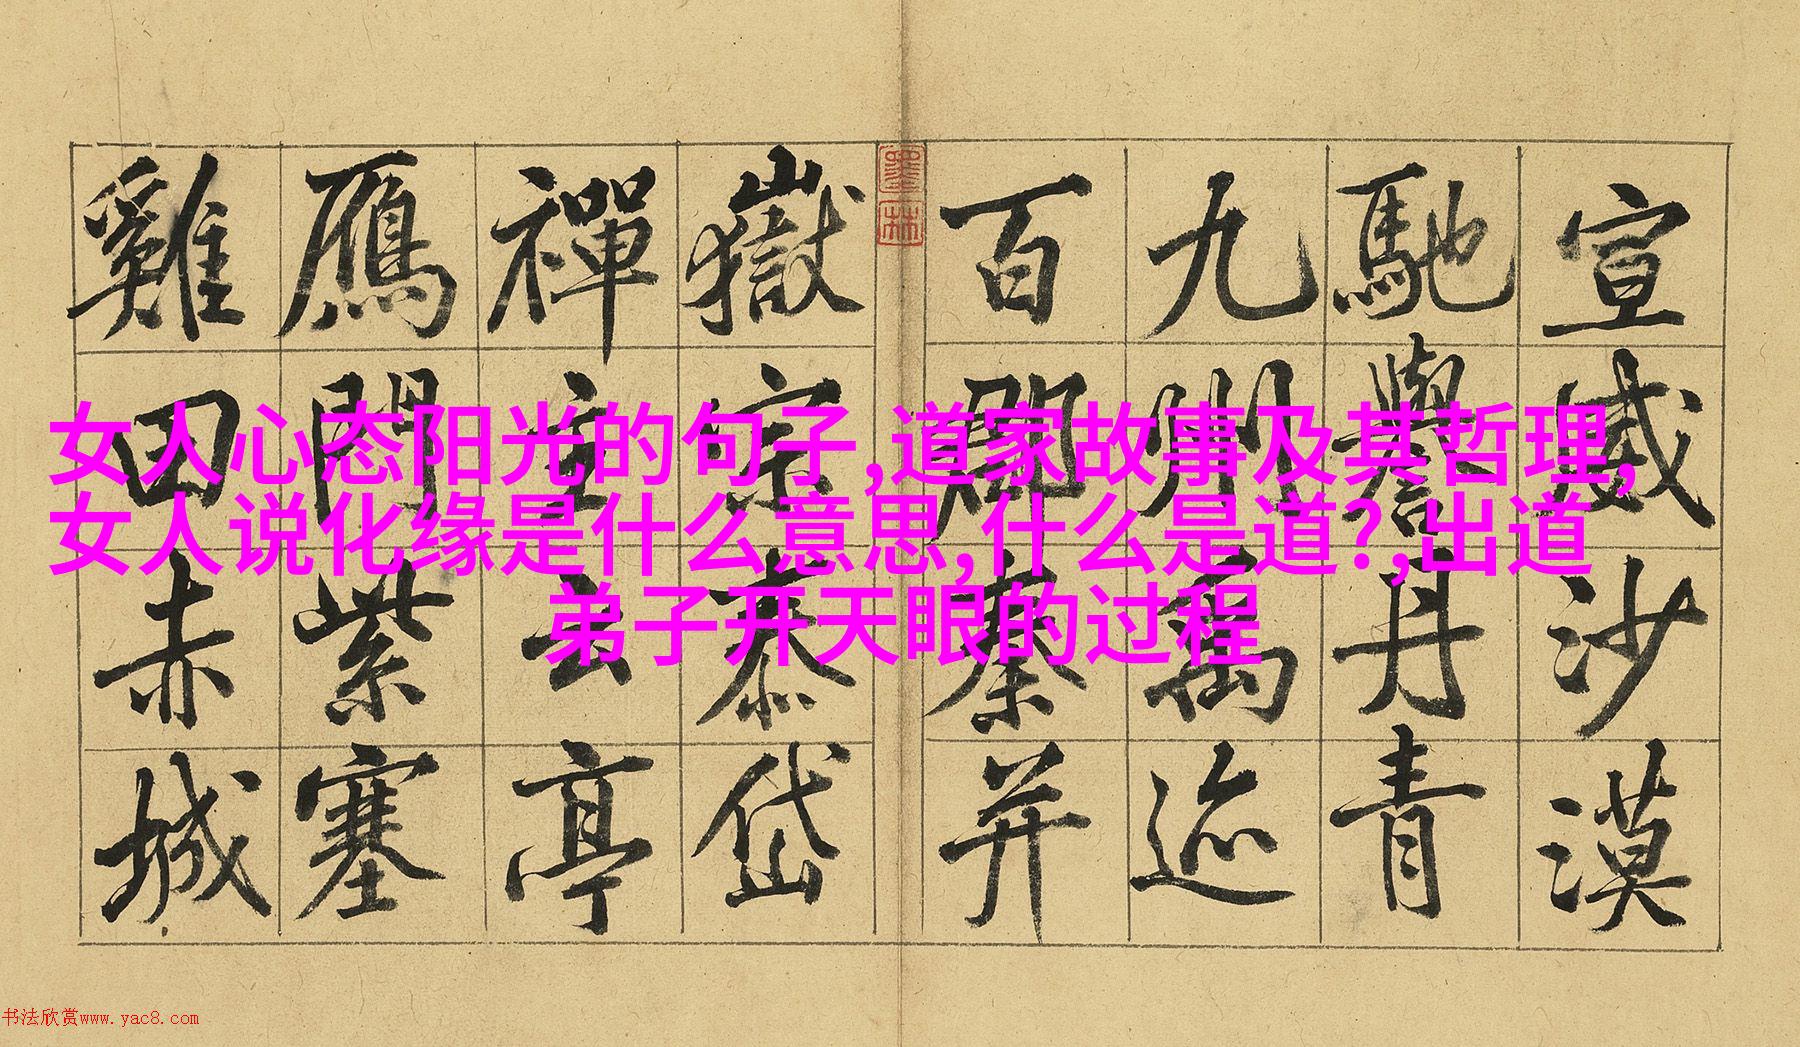 宣威沙漠
馳譽丹青
九州禹迹
百郡秦并
嶽宗泰岱
禪主云亭
鴈門紫塞
雞田赤城
墨林
女人心态阳光的句子,道家故事及其哲理,
女人说化缘是什么意思,什么是道?,出道
弟子开天眼的过程
书法欣赏www.yac8.com